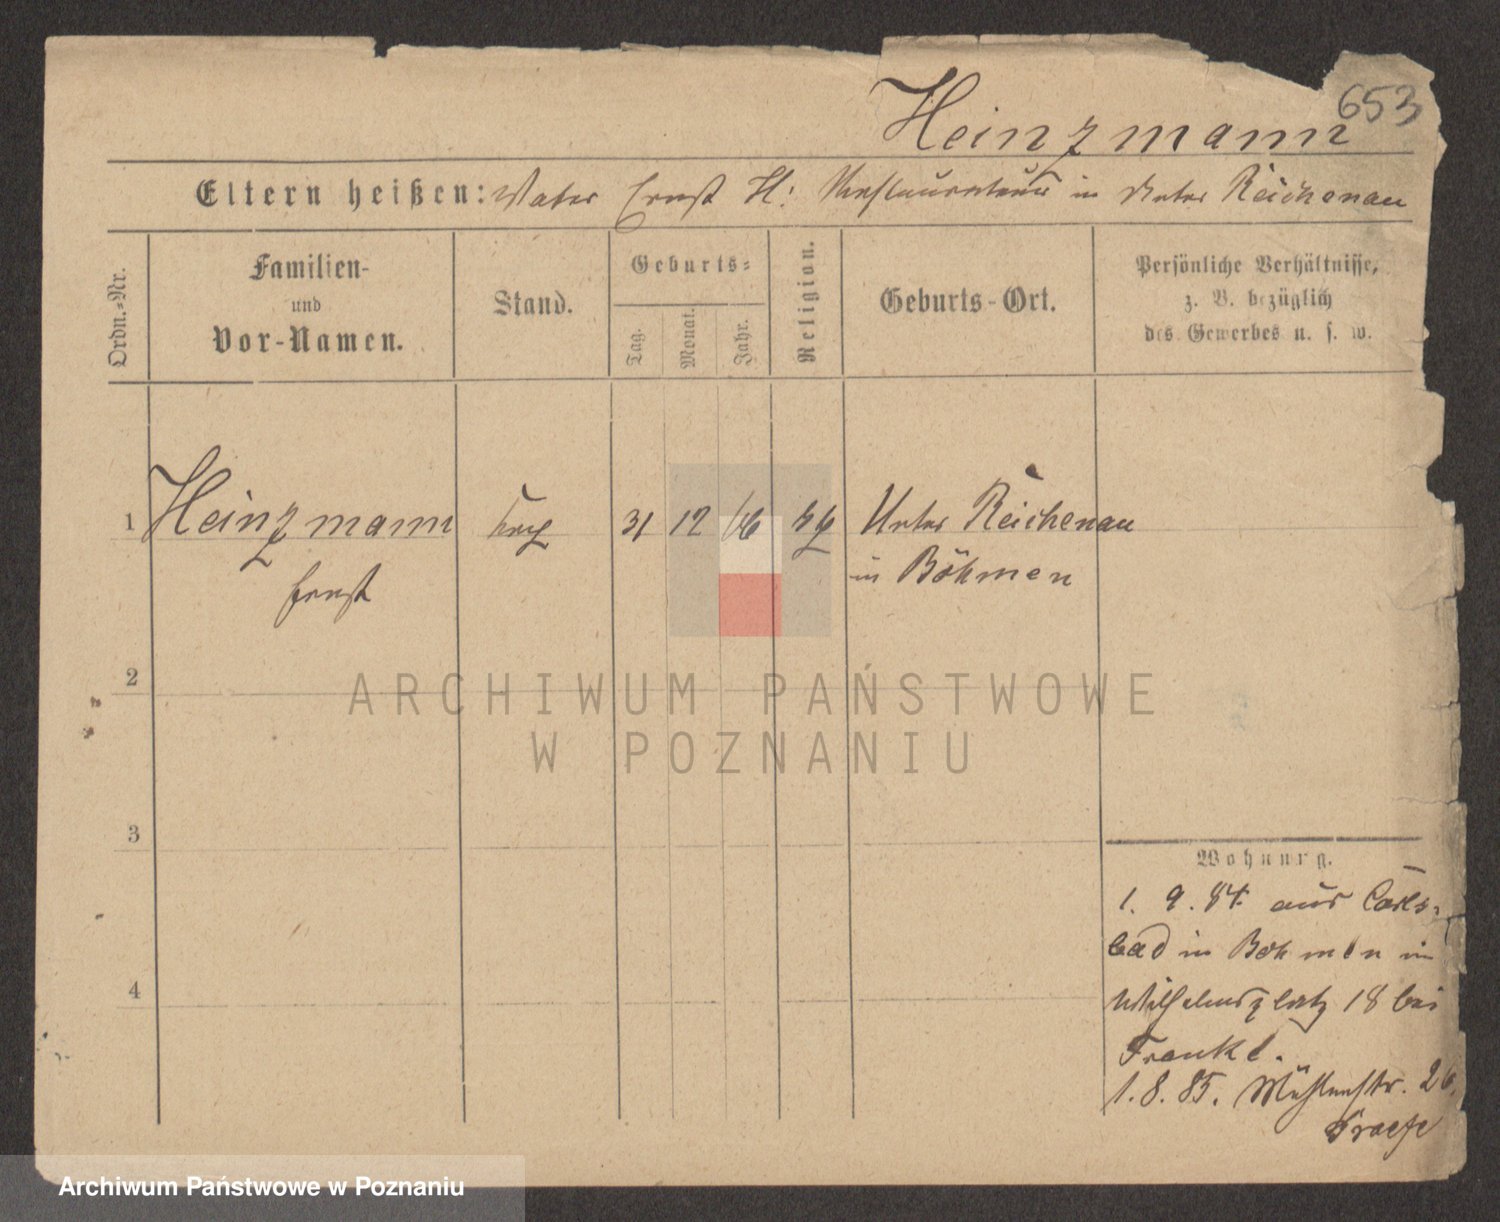 653
Heinzmann
Eltern heißen: Vater Ernst H: Restaurateur in Unter Reichenau
Ordn.-Nr.
Familien-
und
Vor-Namen.
Stand.
Geburts-
Tag.
Monat.
Jahr.
Religion.
Geburts-Ort.
Persönliche Verhältnisse,
z. B. bezüglich
des Gewerbes u. s. w.
1 Heinzmann 31 12 66 Unter Reichenau
Ernst in Böhmen
2
3
4
ARCHIWUM PAŃSTWOWE
W POZNANIU
Wohnung.
1. 9. 84. aus Carls-
bad in Böhmen in
Wilhelmsplatz 18 bei
1. 8. 85. Mühlenstr. 26.
Archiwum Państwowe w Poznaniu